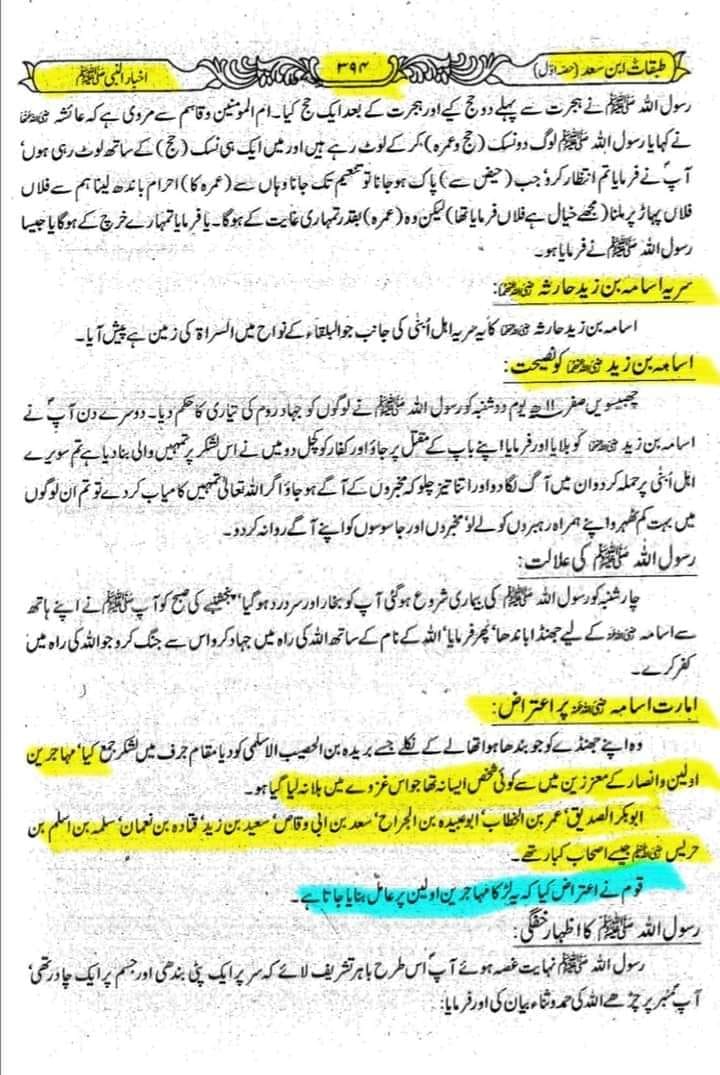 طبقات ابن سعد (حصہ اوّل)
۳۹۴
اخبار النبی ﷺ
رسول اللہ ﷺ نے ہجرت سے پہلے دو حج کیے اور ہجرت کے بعد ایک حج کیا۔ ام المومنین و قاسم سے مروی ہے کہ عائشہ رضی اللہ عنہا
نے کہا یا رسول اللہ ﷺ لوگ دو نسک (حج و عمرہ) کر کے لوٹ رہے ہیں اور میں ایک ہی نسک (حج) کے ساتھ لوٹ رہی ہوں‘
آپؐ نے فرمایا تم انتظار کرو‘ جب (حیض سے) پاک ہو جانا تو تنعیم تک جانا وہاں سے (عمرہ کا) احرام باندھ لینا ہم سے فلاں
فلاں پہاڑ پر ملنا (مجھے خیال ہے فلاں فرمایا تھا) لیکن وہ (عمرہ) بقدر تمہاری غایت کے ہوگا۔ یا فرمایا تمہارے خرچ کے ہوگا یا جیسا
رسول اللہ ﷺ نے فرمایا ہو۔
سریہ اسامہ بن زید حارثہ رضی اللہ عنہما:
اسامہ بن زید حارثہ رضی اللہ عنہما کا یہ سریہ اہل اُبنٰی کی جانب جو البلقاء کے نواح میں السراۃ کی زمین ہے پیش آیا۔
اسامہ بن زید رضی اللہ عنہما کو نصیحت:
چھبیسویں صفر ۱۱ھ یوم دو شنبہ کو رسول اللہ ﷺ نے لوگوں کو جہاد روم کی تیاری کا حکم دیا۔ دوسرے دن آپؐ نے
اسامہ بن زید رضی اللہ عنہما کو بلایا اور فرمایا اپنے باپ کے مقتل پر جاؤ اور کفار کو کچل دو میں نے اس لشکر پر تمہیں والی بنا دیا ہے تم سویرے
اہل اُبنٰی پر حملہ کر دو ان میں آگ لگا دو اور اتنا تیز چلو کہ مخبروں کے آگے ہو جاؤ اگر اللہ تعالیٰ تمہیں کامیاب کر دے تو تم ان لوگوں
میں بہت کم ٹھہرو اپنے ہمراہ رہبروں کو لے لو‘ مخبروں اور جاسوسوں کو اپنے آگے روانہ کر دو۔
رسول اللہ ﷺ کی علالت:
چار شنبہ کو رسول اللہ ﷺ کی بیماری شروع ہو گئی آپ کو بخار اور سر درد ہو گیا‘ پنجشنبے کی صبح کو آپ ﷺ نے اپنے ہاتھ
سے اسامہ رضی اللہ عنہ کے لیے جھنڈا باندھا‘ پھر فرمایا‘ اللہ کے نام کے ساتھ اللہ کی راہ میں جہاد کرو اس سے جنگ کرو جو اللہ کی راہ میں
کفر کرے۔
امارت اسامہ رضی اللہ عنہ پر اعتراض:
وہ اپنے جھنڈے کو جو بندھا ہوا تھا لے کے نکلے جسے بریدہ بن الحصیب الاسلمی کو دیا مقام جرف میں لشکر جمع کیا‘ مہاجرین
اولین و انصار کے معززین میں سے کوئی شخص ایسا نہ تھا جو اس غزوے میں بلا نہ لیا گیا ہو۔
ابوبکر الصدیق‘ عمر بن الخطاب‘ ابوعبیدہ بن الجراح‘ سعد بن ابی وقاص‘ سعید بن زید‘ قتادہ بن نعمان‘ سلمہ بن اسلم بن
حریس ﷺ جیسے اصحاب کبار تھے۔
قوم نے اعتراض کیا کہ یہ لڑکا مہاجرین اولین پر عامل بنایا جاتا ہے۔
رسول اللہ ﷺ کا اظہار خفگی:
رسول اللہ ﷺ نہایت غصہ ہوئے آپؐ اس طرح باہر تشریف لائے کہ سر پر ایک پٹی بندھی اور جسم پر ایک چادر تھی‘
آپؐ منبر پر چڑھے اللہ کی حمد و ثناء بیان کی اور فرمایا: